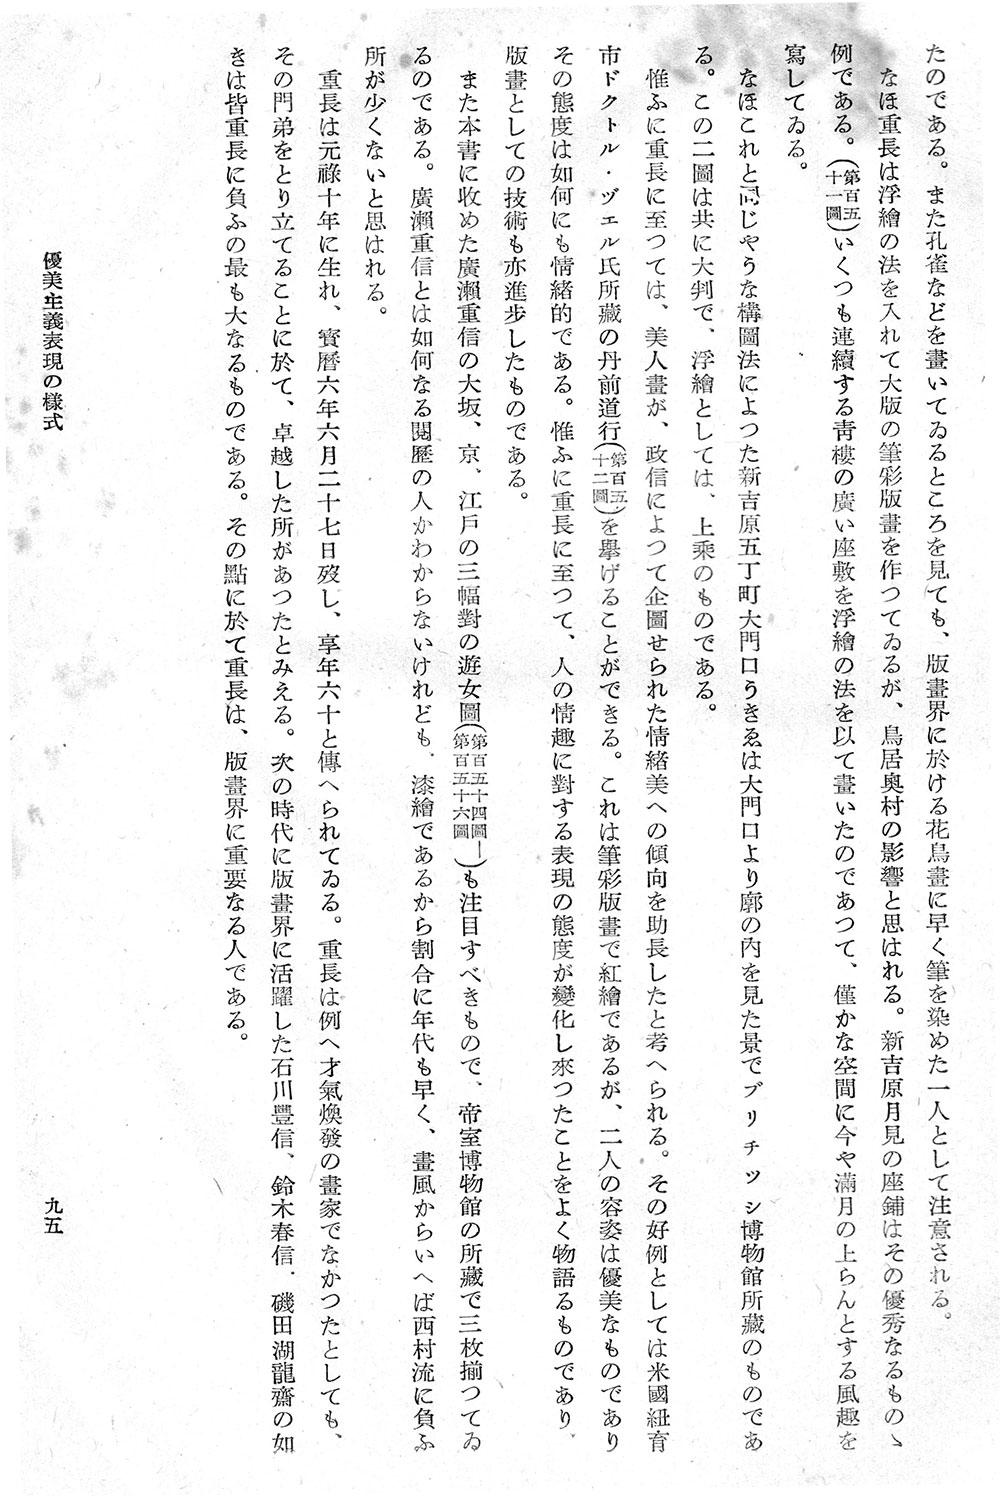 たのである。また孔雀などを畫いてゐるところを見ても、版畫界に於ける花鳥畫に早く筆を染めた一人として注意される。
なほ重長は浮繪の法を入れて大版の筆彩版畫を作つてゐるが、鳥居奧村の影響と思はれる。新吉原月見の座鋪はその優秀なるものゝ
例である。(第百五十一圖)いくつも連續する靑樓の廣い座敷を浮繪の法を以て畫いたのであつて、僅かな空間に今や滿月の上らんとする風趣を
寫してゐる。
なほこれと同じやうな構圖法によつた新吉原五丁町大門口うきゑは大門口より廓の內を見た景でブリチッシ博物館所藏のものであ
る。この二圖は共に大判で、浮繪としては、上乘のものである。
惟ふに重長に至つては、美人畫が、政信によつて企圖せられた情緒美への傾向を助長したと考へられる。その好例としては米國紐育
市ドクトル・ヅエル氏所藏の丹前道行(第百五十二圖)を擧げることができる。これは筆彩版畫で紅繪であるが、二人の容姿は優美なものであり
その態度は如何にも情緒的である。惟ふに重長に至つて、人の情趣に對する表現の態度が變化し來つたことをよく物語るものであり、
版畫としての技術も亦進步したものである。
また本書に收めた廣瀨重信の大坂、京、江戶の三幅對の遊女圖(第百五十四圖―第百五十六圖)も注目すべきもので、帝室博物館の所藏で三枚揃つてゐ
るのである。廣瀨重信とは如何なる閱歷の人かわからないけれども、漆繪であるから割合に年代も早く、畫風からいへば西村流に負ふ
所が少くないと思はれる。
重長は元祿十年に生れ、寳曆六年六月二十七日歿し、享年六十と傳へられてゐる。重長は例へ才氣煥發の畫家でなかつたとしても、
その門弟をとり立てることに於て、卓越した所があつたとみえる。次の時代に版畫界に活躍した石川豐信、鈴木春信、磯田湖龍齋の如
きは皆重長に負ふの最も大なるものである。その點に於て重長は、版畫界に重要なる人である。
優美主義表現の樣式
九五